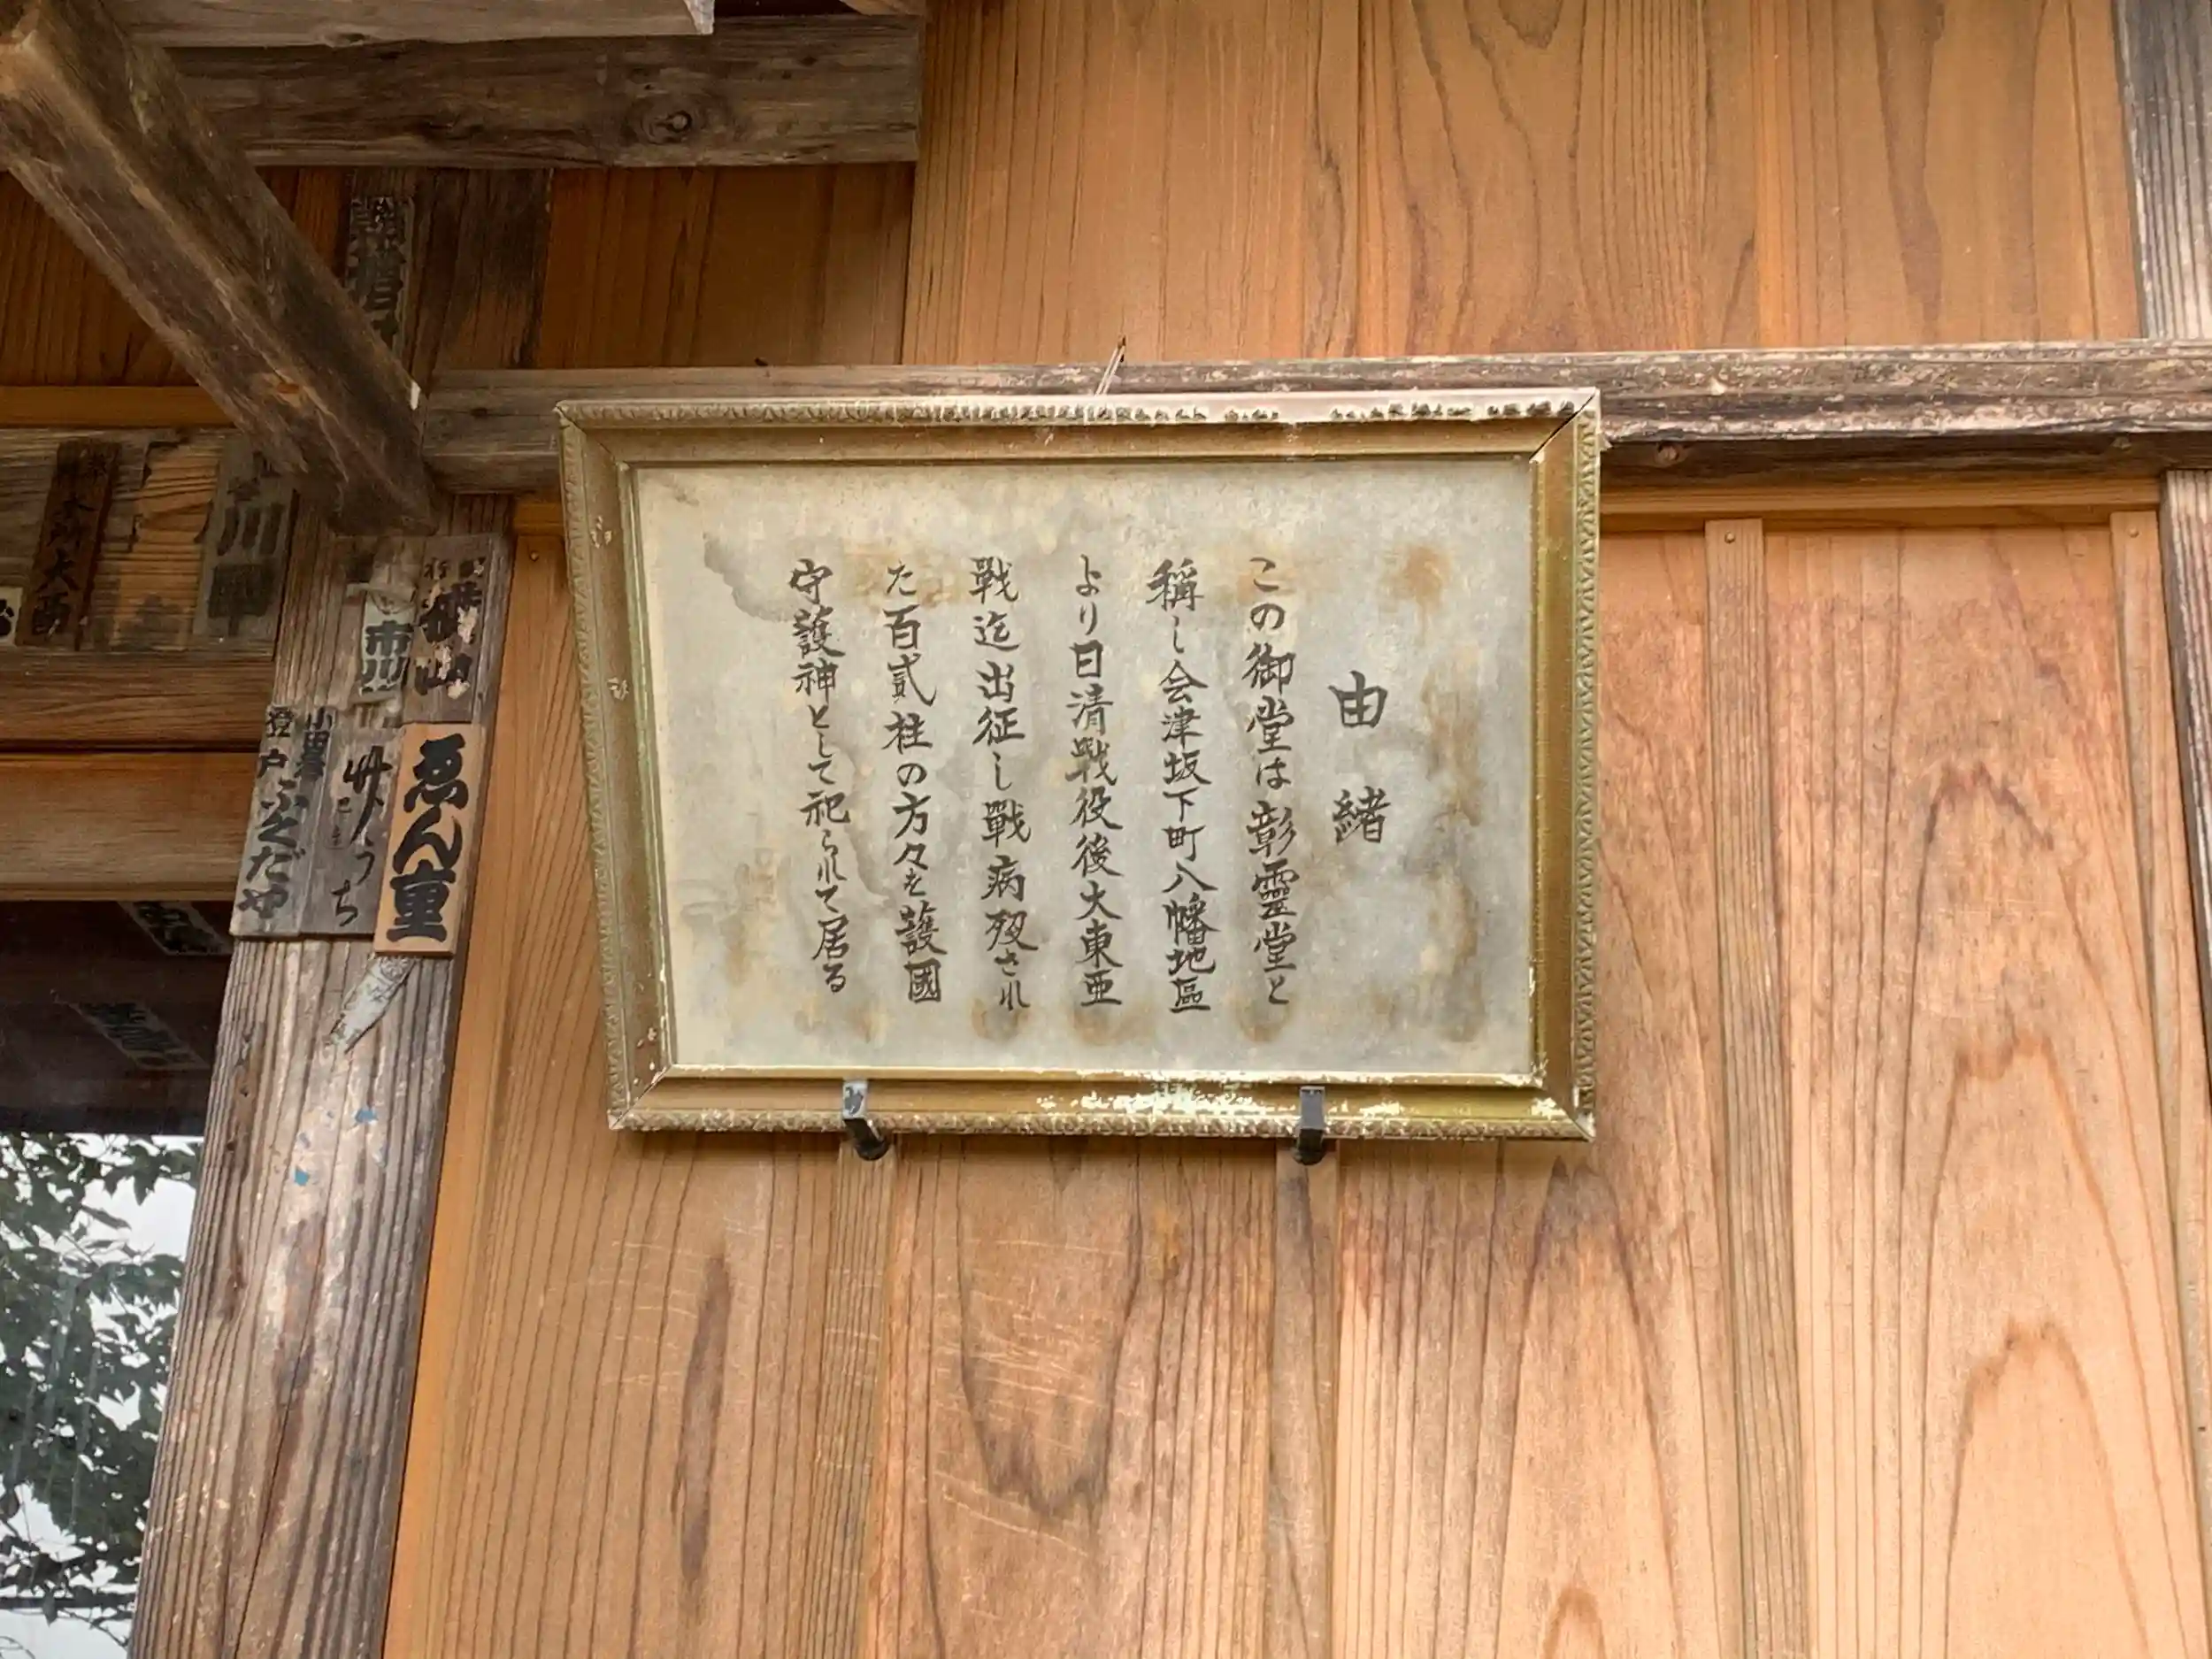 由緒
この御堂は彰靈堂と
稱し会津坂下町八幡地區
より日清戦役後大東亜
戰迄出征し戰病殁され
た百貳柱の方々を護國
守護神として祀られて居る
市川
ゑん重
小田原
登戸ふくだや
大西